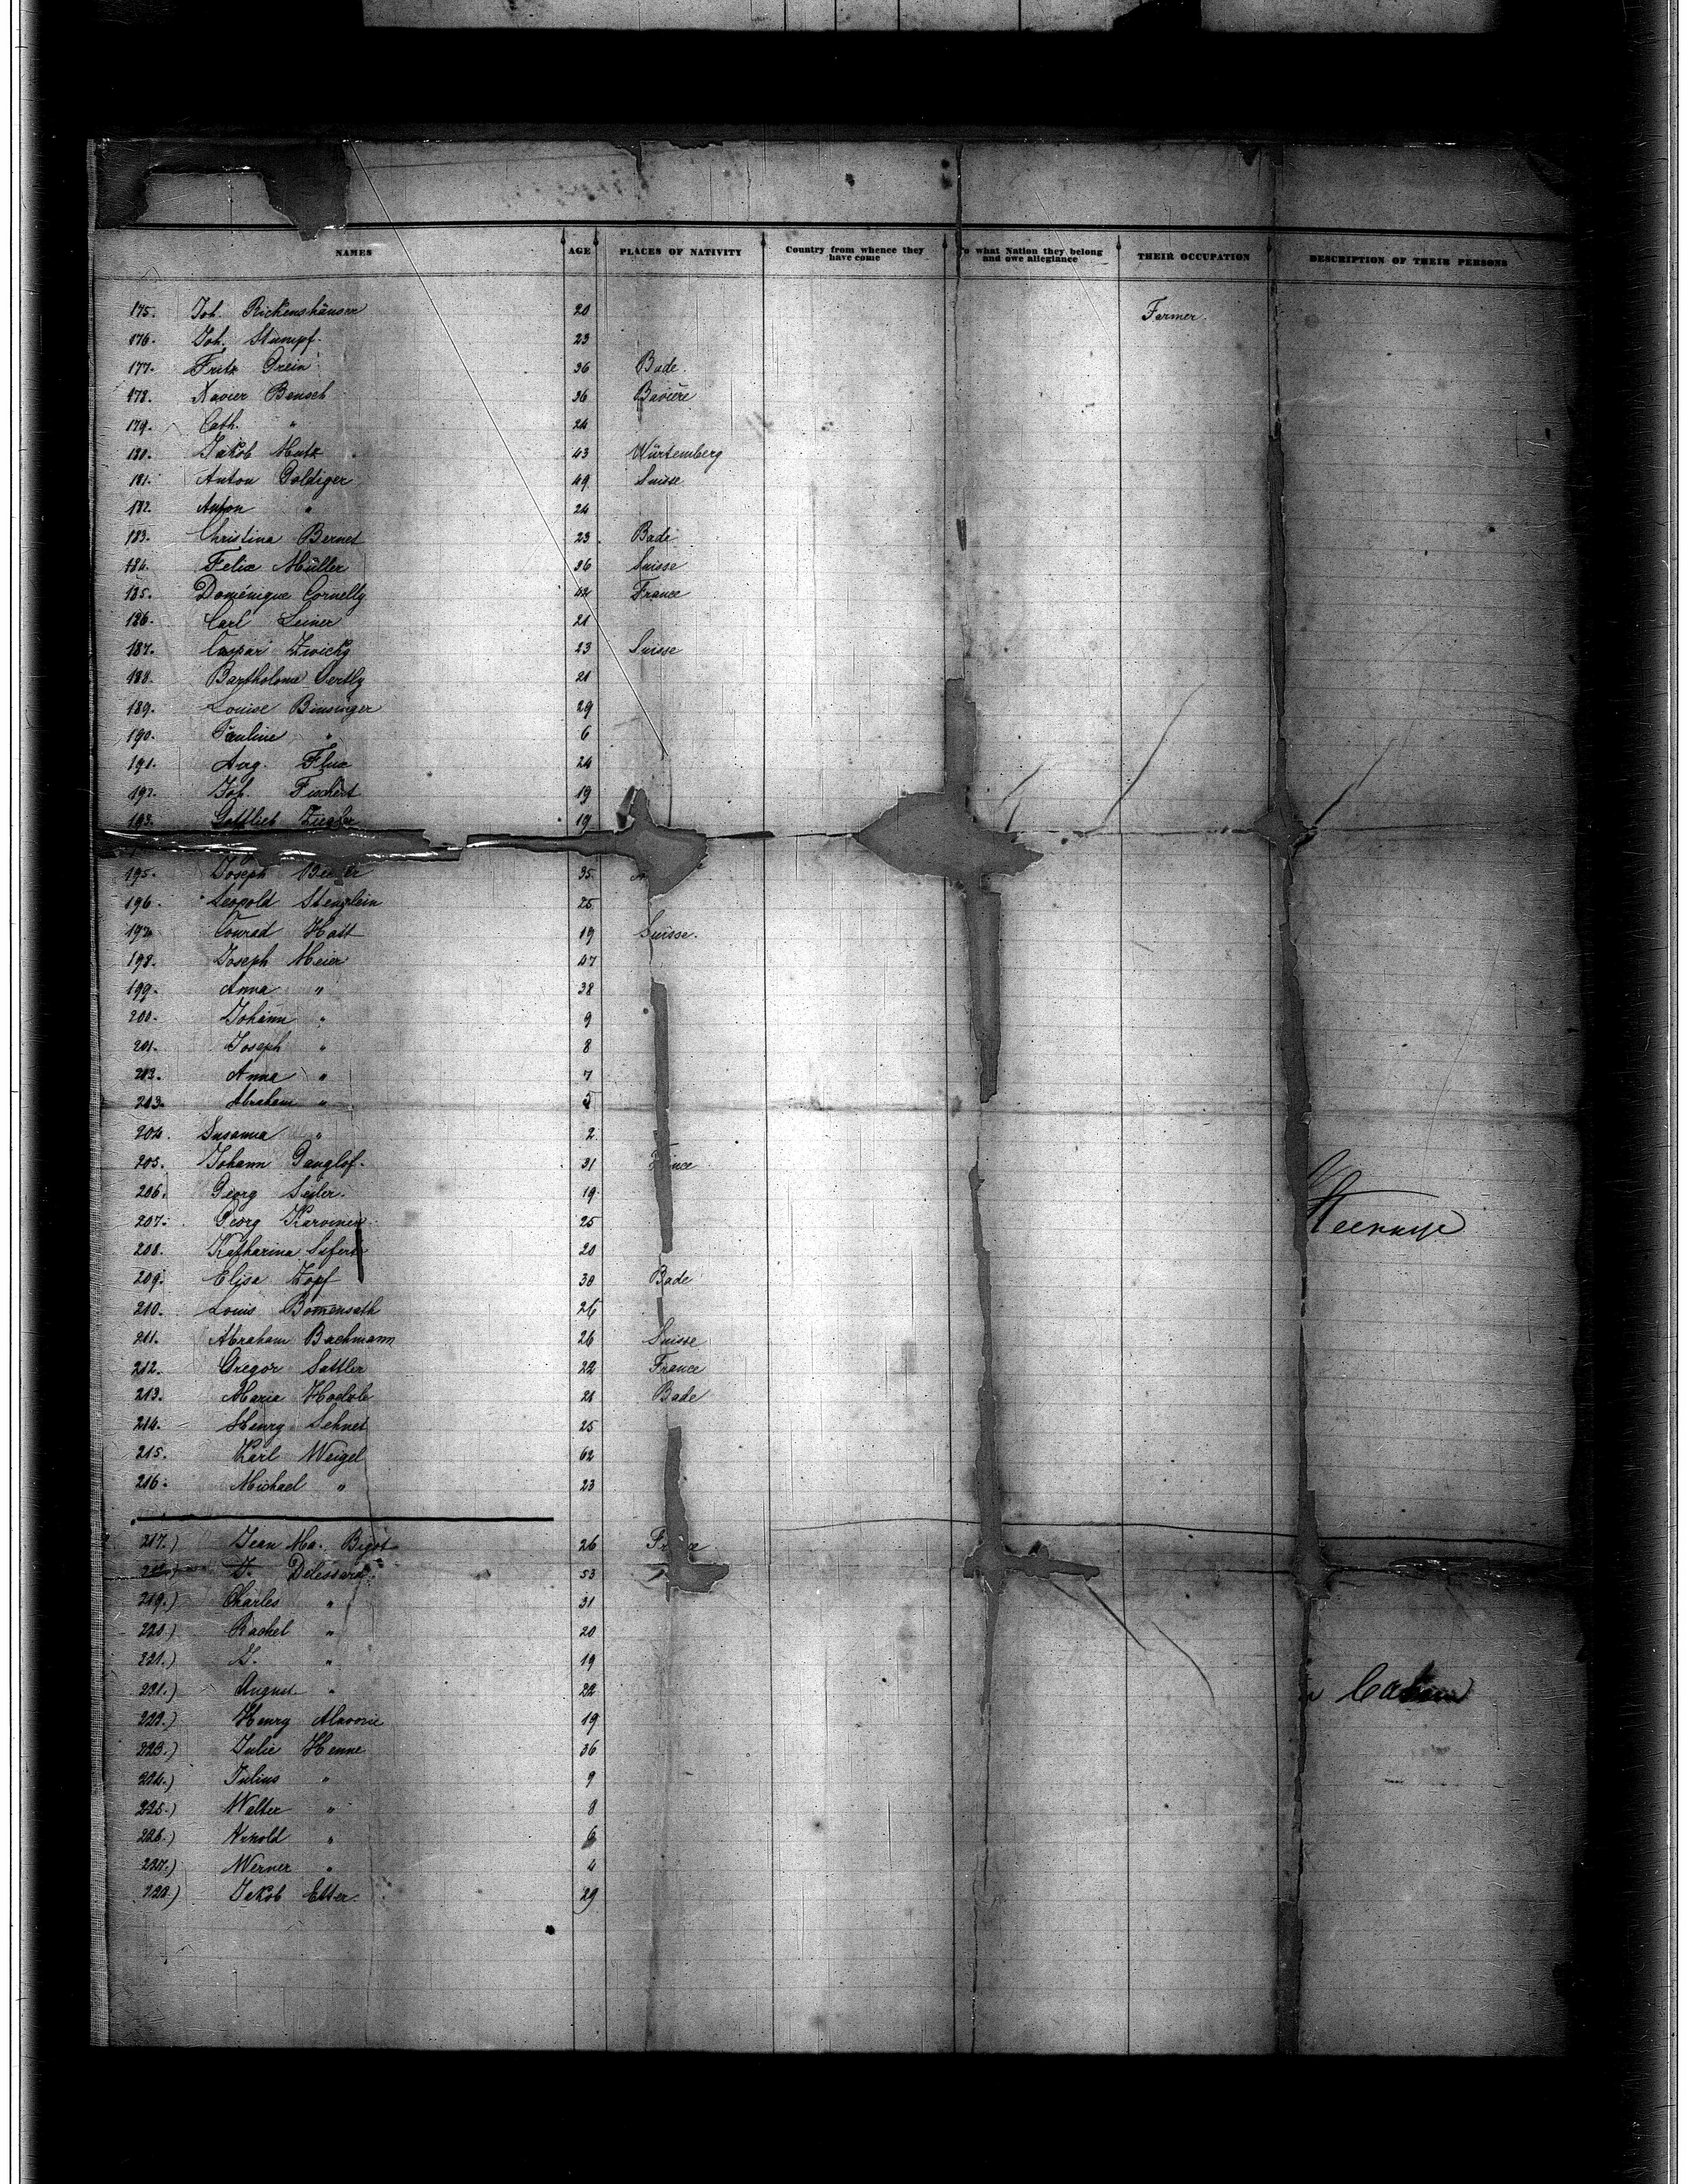 NAMES AGE PLACES OF NATIVITY Country from whence they have come To what Nation they belong and owe allegiance THEIR OCCUPATION DESCRIPTION OF THEIR PERSONS
175. Joh. Rickenshäuser 20 Farmer.
176. Joh. Stumpf. 23
177. Fritz Grein 36 Bade.
178. Xavier Bensch 36 Bavière
179. Cath. " 24
180. Jakob Mutz 43 Würtemberg
181. Anton Goldiger 49 Suisse
182. Anton " 24
183. Christina Bernet 23. Bade
184. Felix Müller 36 Suisse
185. Doménique Cornelly 42 France
186. Carl Leiner 21
187. Caspar Zwicky 23 Suisse
188. Bartholome 21
189. Louise Binsinger 29
190. Pauline " 6
191. Aug. Flux 24
192. Joh. Fischert 19
193. Gottlieb Ziegler 19
195. Joseph 35
196. Leopold Stenglein 25
197. Conrad Hatt 19 Suisse.
198. Joseph Meier 47
199. Anna " 38
200. Johann " 9
201. Joseph " 8
203. Anna " 7
203. Abraham " 5
204. Susanna " 2
205. Johann Danglof. 31
206. Georg Seiler. 19
207. Georg 25 Steerage
208. Katharina 20
209. Elisa Zopf 30 Bade
210. Louis Bomensath 26
211. Abraham Bachmann 26 Suisse
212. Gregor Sattler 22 France
213. Maria 21 Bade
214. Henry Sehnet 25
215. Karl Weigel 62
216. Michael " 23
217.) Jean Ma. Bigot 26
J. Delessard 53
219.) Charles " 31
220.) Rachel " 20
221.) " 19
221.) August " 22 Cabin
222.) Henry 19
223.) Julie Henne 36
224.) Julius " 9
225.) Walter " 8
226.) Arnold " 6
227.) Werner " 4
228) Jakob Etter. 29